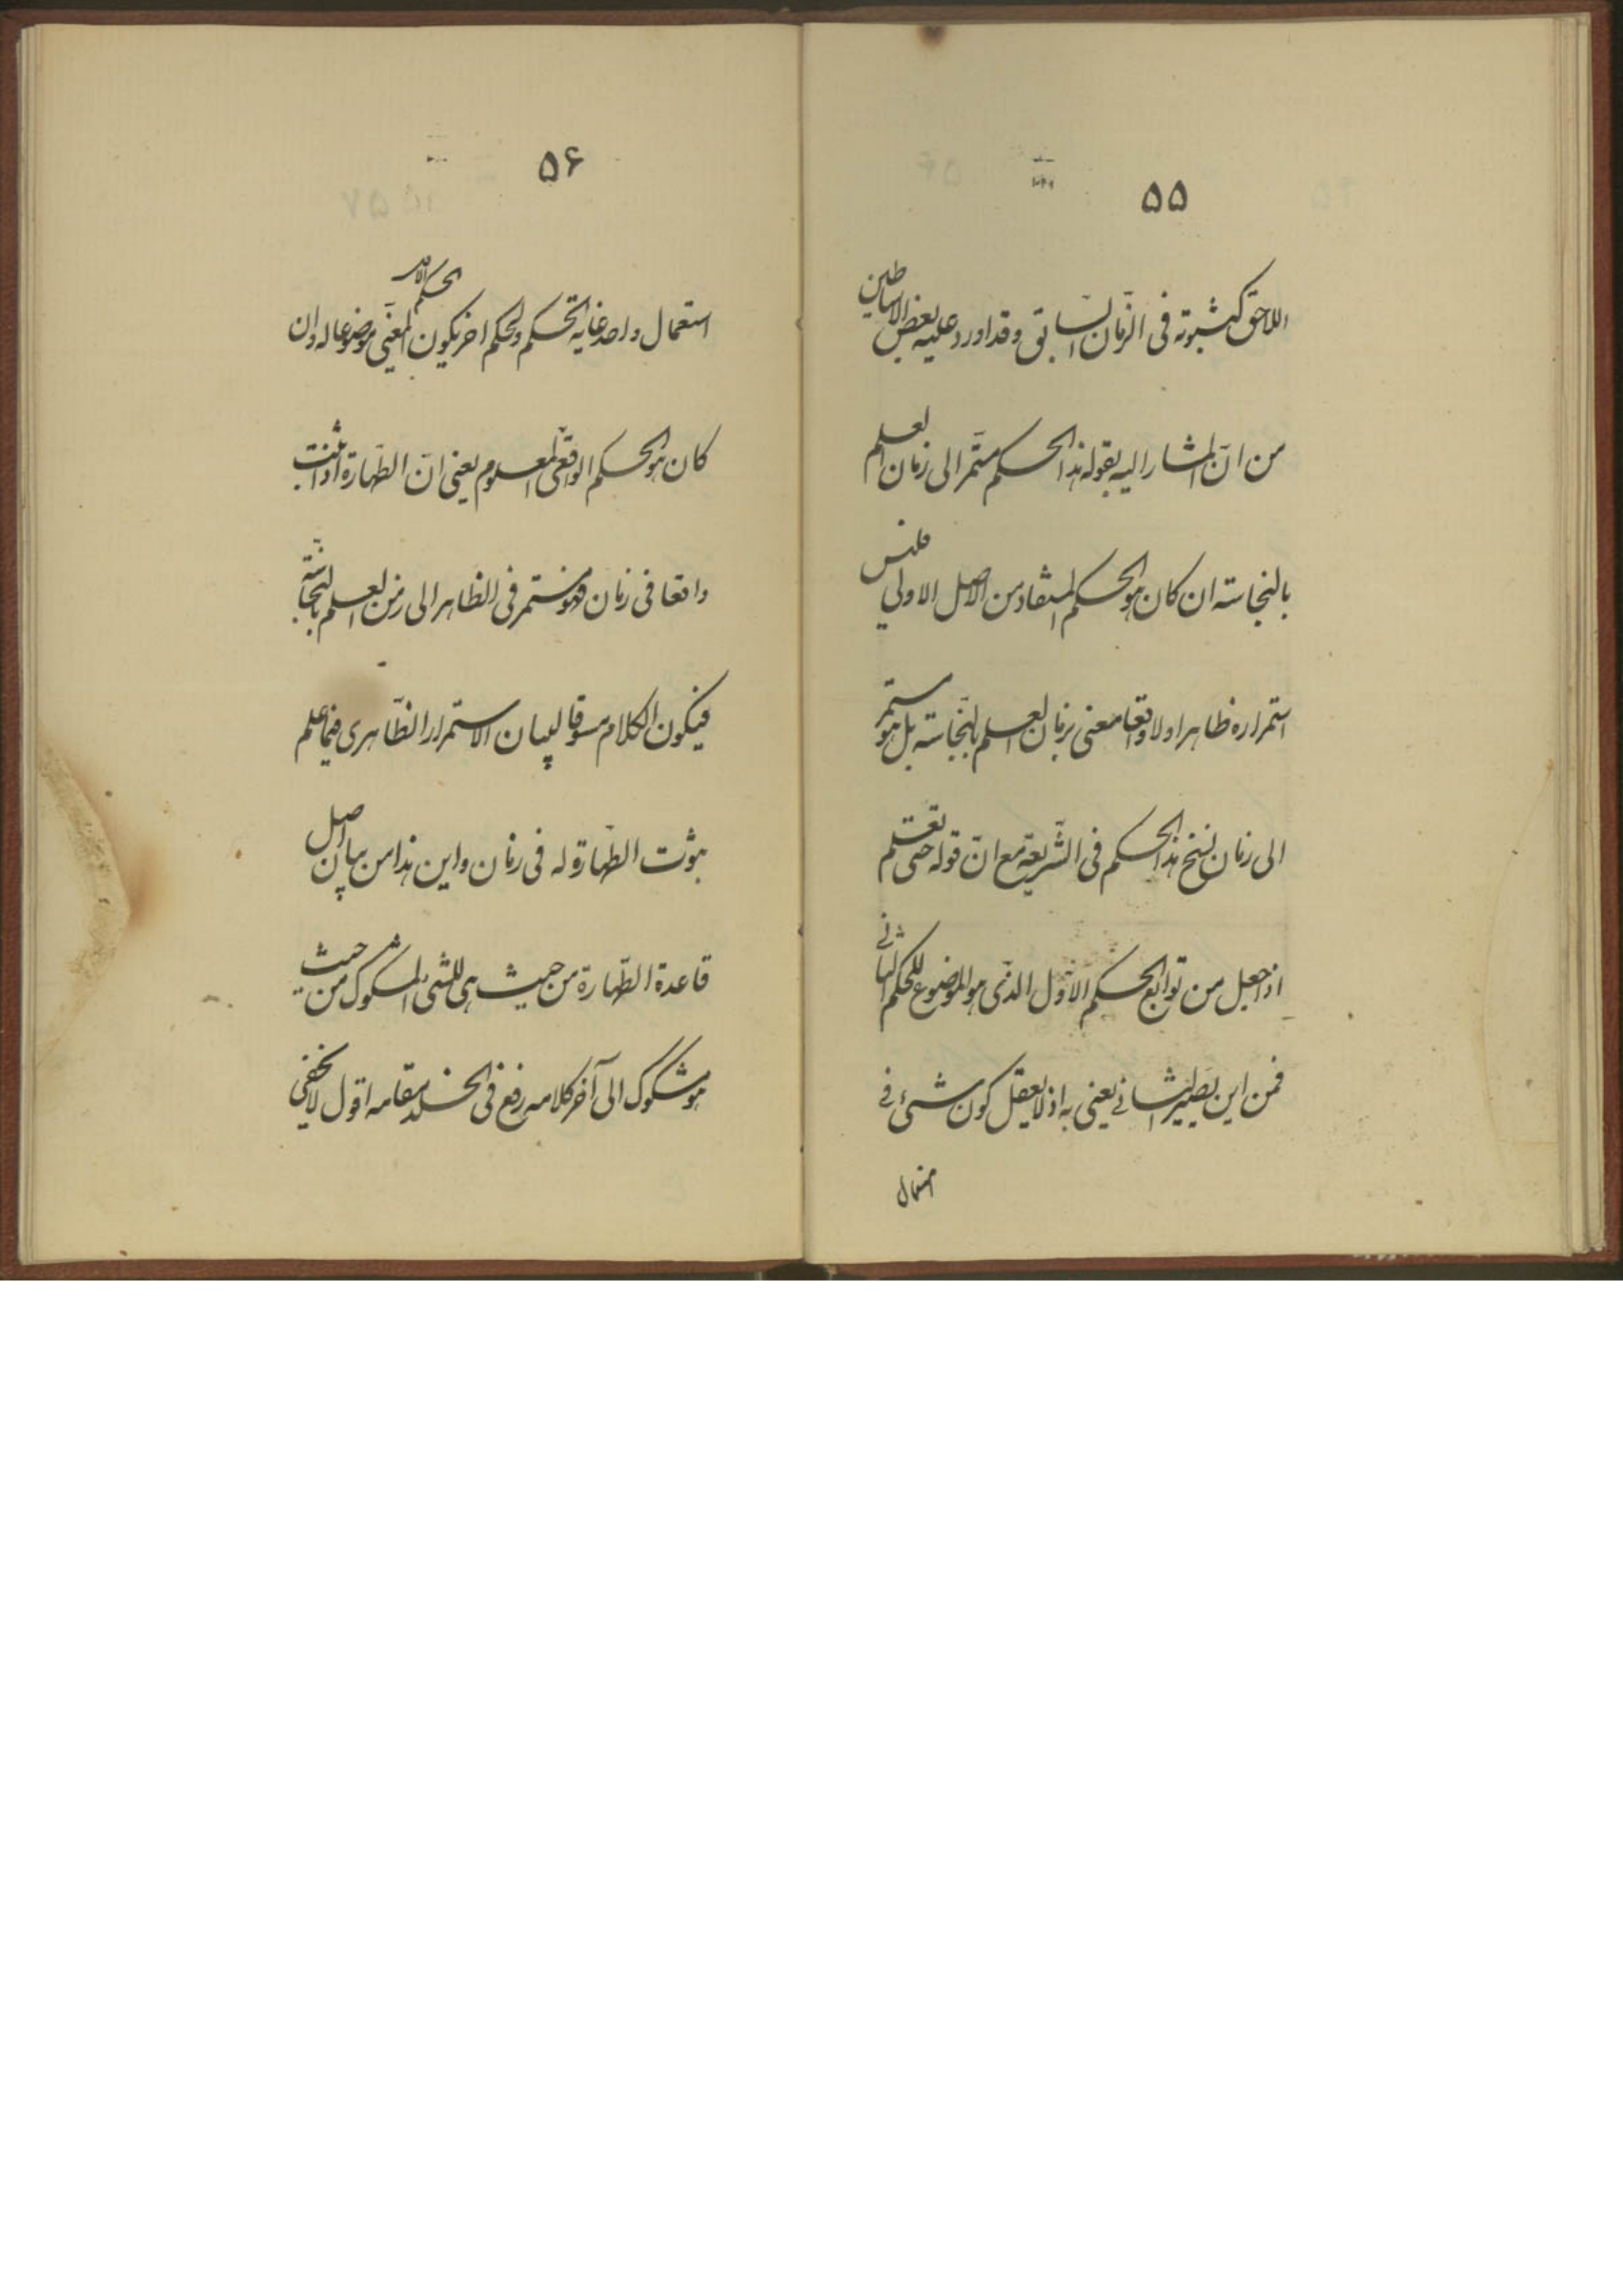 ۵۵
اللاحق كثبوته فى الزمان السابق وقد اورد عليه بعض الاساطين
من ان المشار اليه بقوله هذا الحكم مستمر الى زمان العلم
بالنجاسة ان كان هو الحكم المستفاد من الاصل الاولى فليس
استمراره ظاهرا ولا واقعا مغيى بزمان العلم بالنجاسة بل هو مستمر
الى زمان نسخ هذا الحكم فى الشريعة مع ان قوله حتى تعلم
اذا جعل من توابع الحكم الاول الذى هو الموضوع للحكم الثانى
فمن اين يصير الثانى مغيى به اذ لا يعقل كون شىء فى
استعمال
۵۶
استعمال واحد غاية لحكم ولحكم اخر يكون الحكم الاول المغيى موضوعا له وان
كان هو الحكم الواقعى المعلوم يعنى ان الطهارة اذا ثبتت
واقعا فى زمان فهو مستمر فى الظاهر الى زمن العلم بالنجاسة
فيكون الكلام مسوقا لبيان الاستمرار الظاهرى فيما علم
ثبوت الطهارة له فى زمان واين هذا من بيان اصل
قاعدة الطهارة من حيث هى للشىء المشكوك من حيث
هو مشكوك الى آخر كلامه رفع فى الخلد مقامه اقول لا يخفى